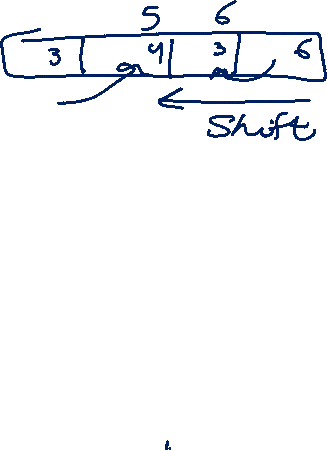 5 6
3 4 3 6
Shift